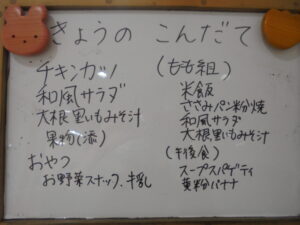 きょうの こんだて
チキンカツ
和風サラダ
大根、里いもみそ汁
果物(添)
おやつ
お野菜スナック、牛乳
(もも組)
米飯
ささみパン粉焼
和風サラダ
大根、里いもみそ汁
(午後食)
スープスパゲティ
黄粉バナナ